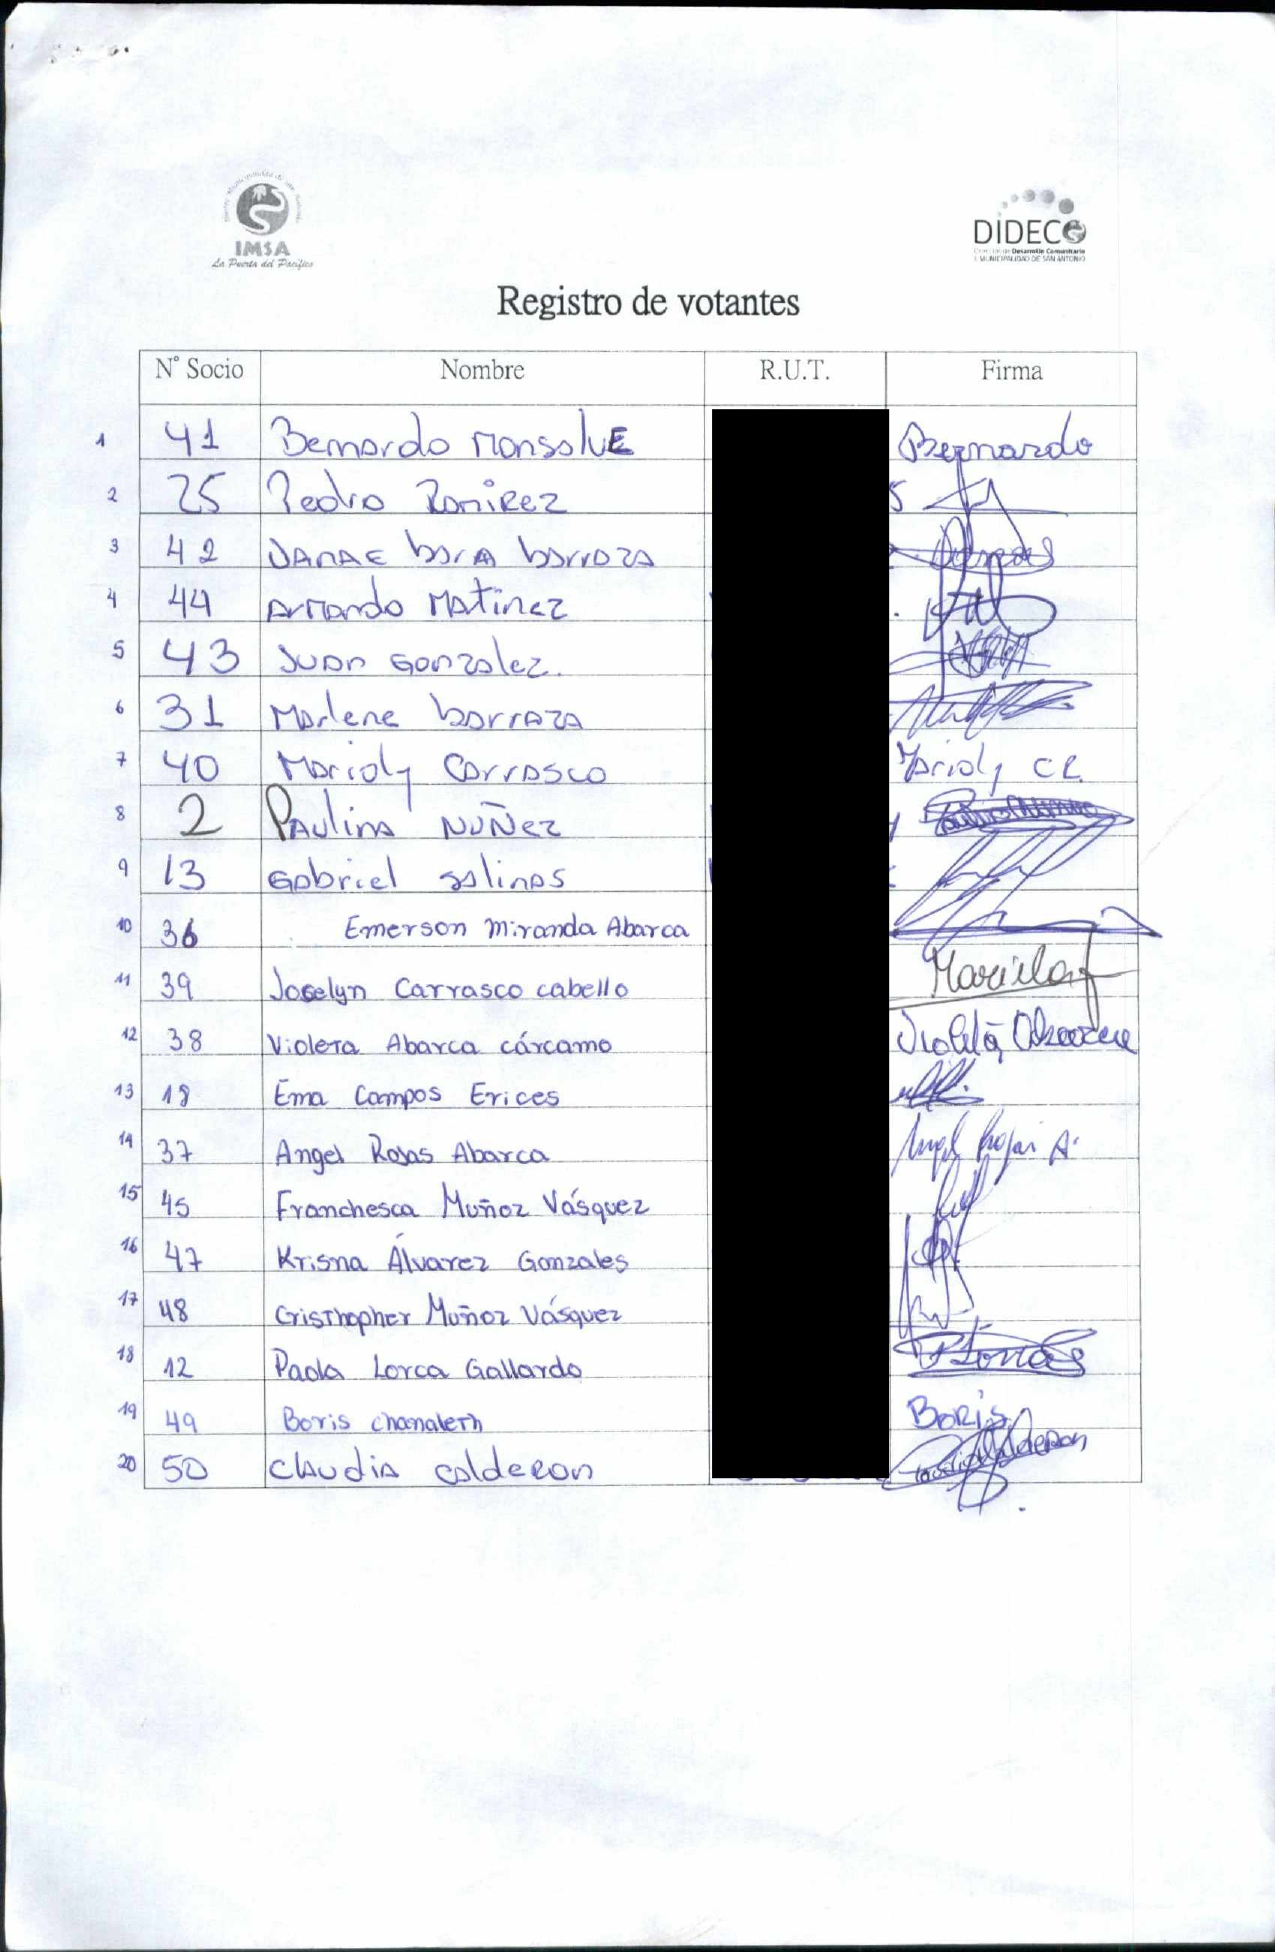 IMSA
La Puerta del Pacífico
DIDECO
Desarrollo Comunitario
I. MUNICIPALIDAD DE SAN ANTONIO
Registro de votantes
N° Socio Nombre R.U.T. Firma
1 41 Bernardo MonsalvE Bernardo
2 25 Pedro Ramirez
3 42 DANAE bara barroza
4 44 Armando Matinez
5 43 Juan Gonzalez.
6 31 Marlene barraza
7 40 Marioly Carrasco Marioly CR
8 2 Paulina Nuñez
9 13 Gabriel Salinas
10 36 Emerson Miranda Abarca
11 39 Joselyn Carrasco cabello
12 38 Violeta Abarca cárcamo Violeta
13 18 Ema Campos Erices
14 37 Angel Rojas Abarca Angel Rojas A.
15 45 Franchesca Muñoz Vásquez
16 47 Krisna Álvarez Gonzales
17 48 Cristhopher Muñoz Vásquez
18 12 Paola Lorca Gallardo
19 49 Boris Chanaleth Boris
20 50 Claudia Calderon